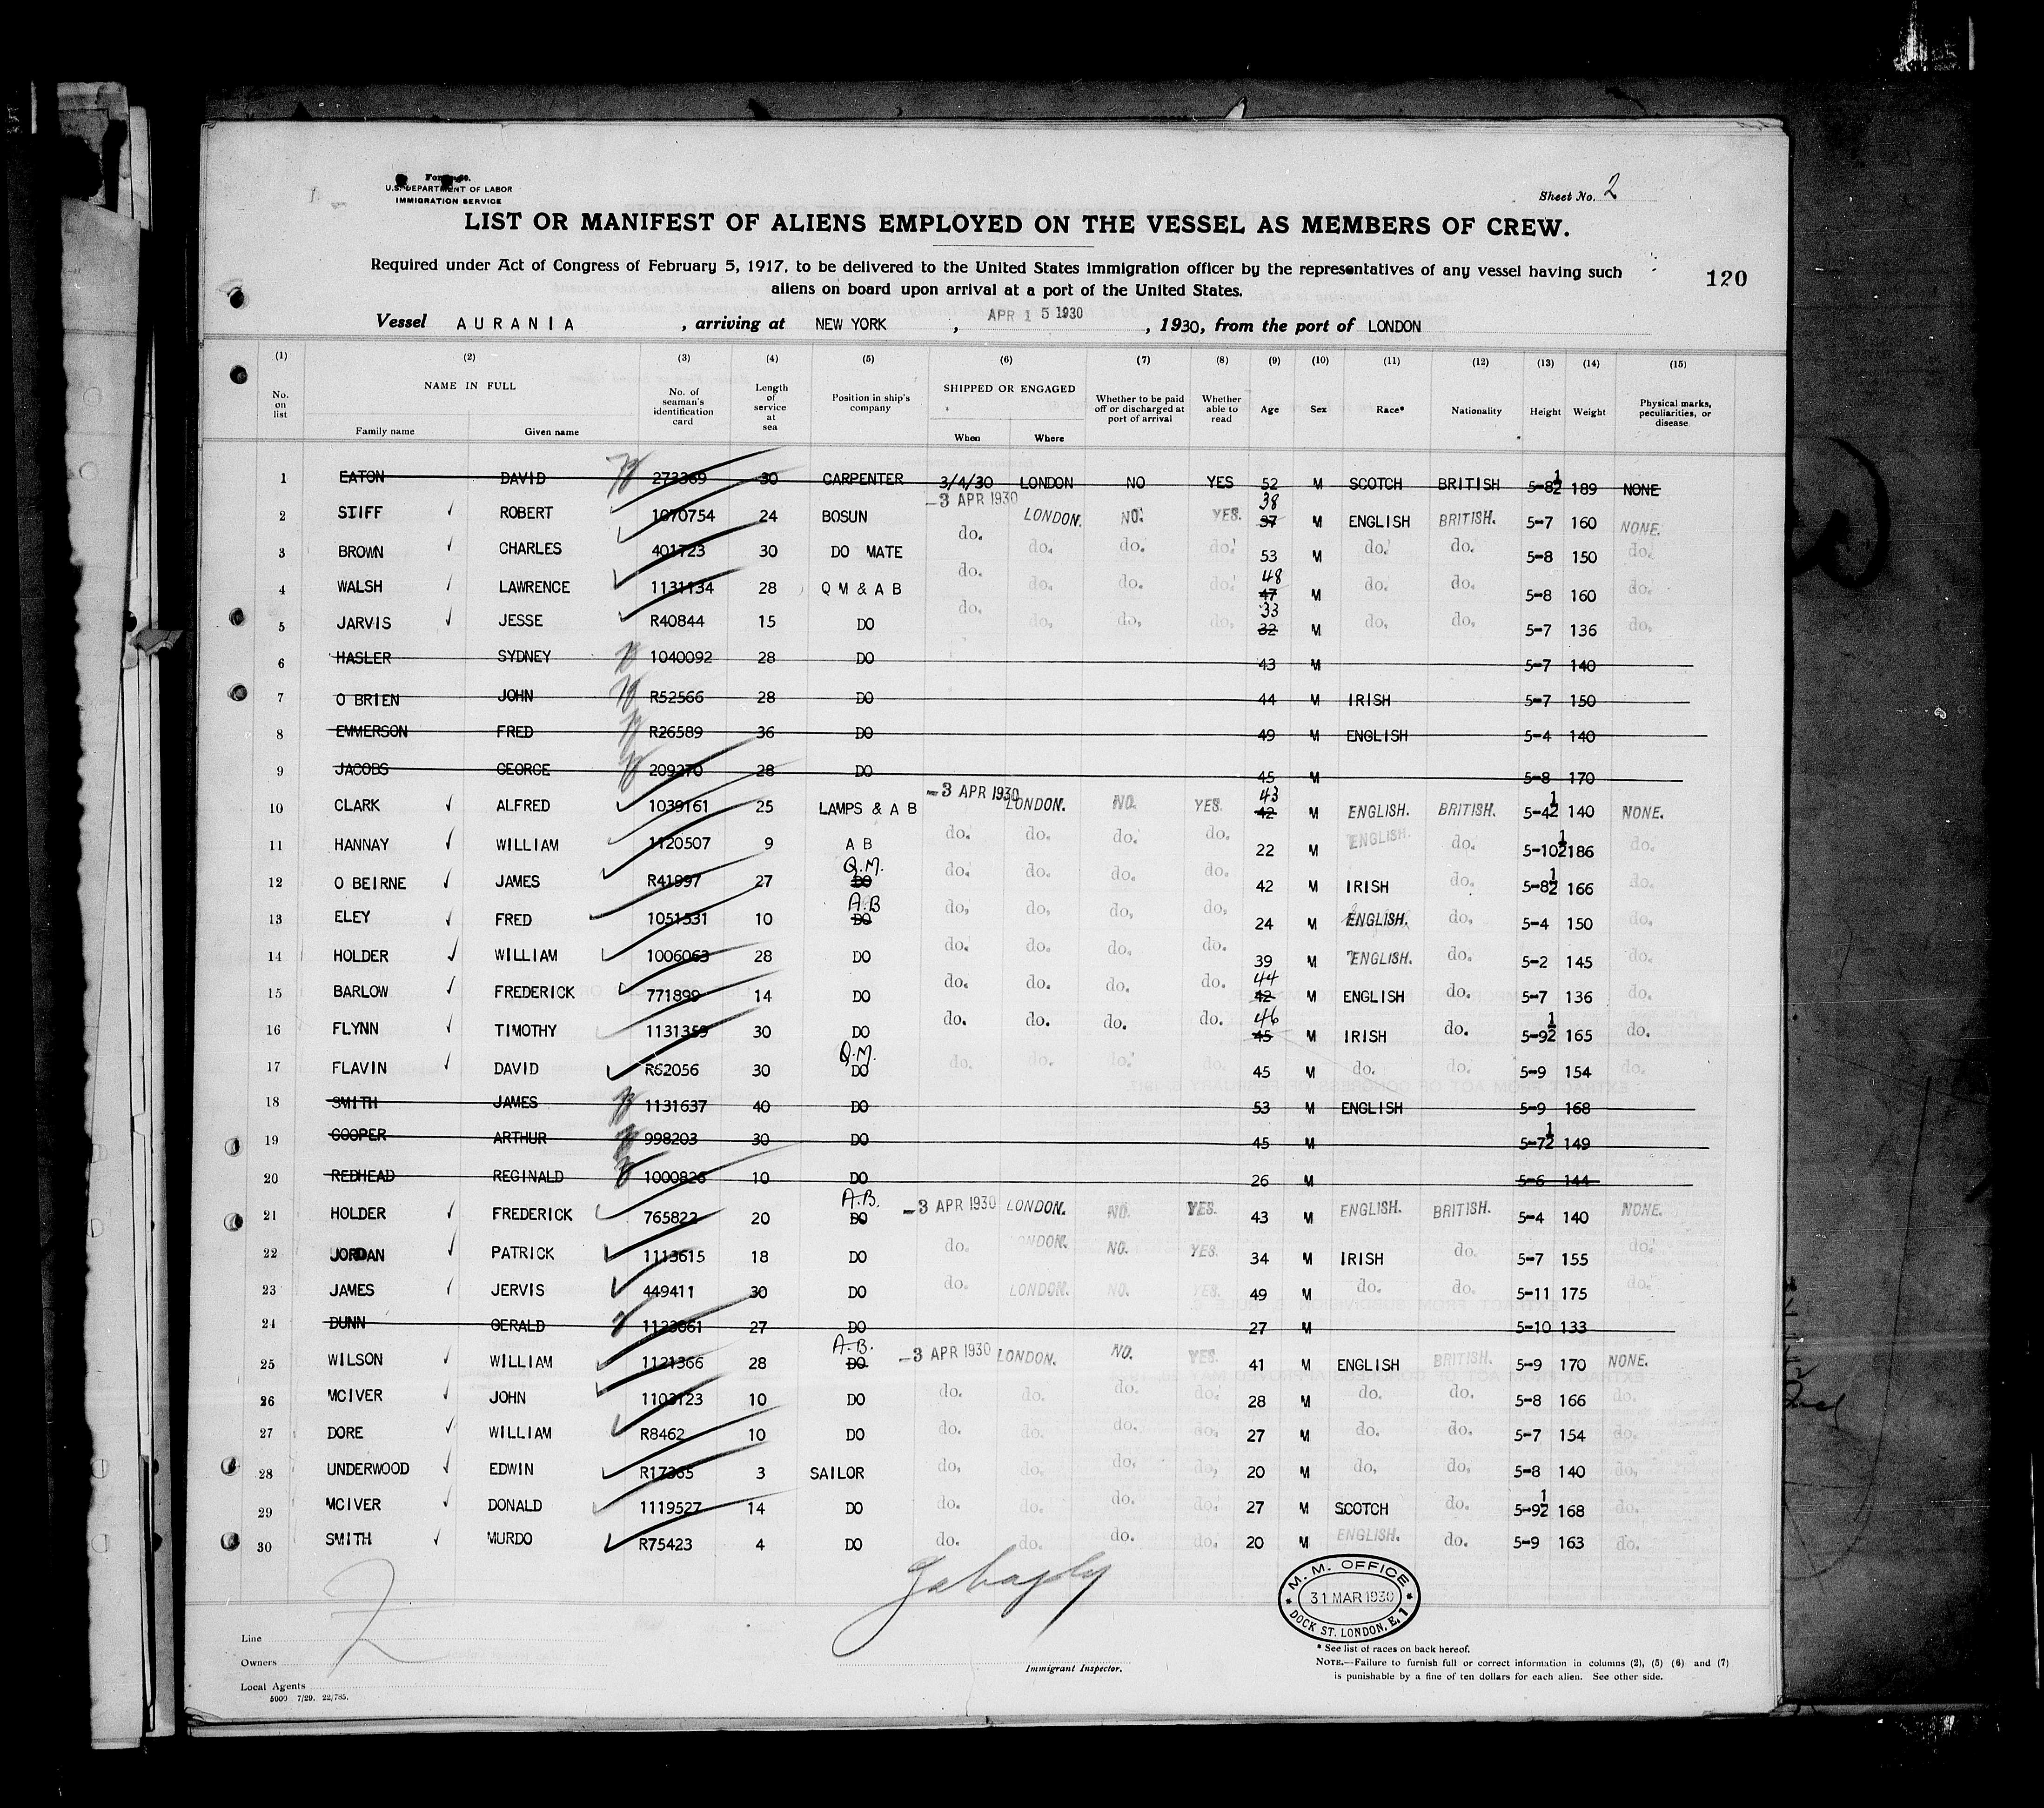 Sheet No. 2
U.S. DEPARTMENT OF LABOR
IMMIGRATION SERVICE
LIST OR MANIFEST OF ALIENS EMPLOYED ON THE VESSEL AS MEMBERS OF CREW.
Required under Act of Congress of February 5, 1917, to be delivered to the United States immigration officer by the representatives of any vessel having such
aliens on board upon arrival at a port of the United States.
120
Vessel AURANIA , arriving at NEW YORK , APR 15 1930 , 1930, from the port of LONDON
(1) (2) (3) (4) (5) (6) (7) (8) (9) (10) (11) (12) (13) (14) (15)
No. on list NAME IN FULL Family name Given name No. of seaman's identification card Length of service at sea Position in ship's company SHIPPED OR ENGAGED When Where Whether to be paid off or discharged at port of arrival Whether able to read Age Sex Race* Nationality Height Weight Physical marks, peculiarities, or disease
1 EATON DAVID 273369 30 CARPENTER 3/4/30 LONDON NO YES 52 M SCOTCH BRITISH 5-8½ 189 NONE
2 STIFF ROBERT 1070754 24 BOSUN -3 APR 1930 LONDON. NO. YES. 37 38 M ENGLISH BRITISH. 5-7 160 NONE.
3 BROWN CHARLES 401723 30 DO MATE do. do. do. do. 53 M do. do. 5-8 150 do.
4 WALSH LAWRENCE 1131134 28 Q M & A B do. do. do. do. 47 48 M do. do. 5-8 160 do.
5 JARVIS JESSE R40844 15 DO do. do. do. do. 32 33 M do. do. 5-7 136 do.
6 HASLER SYDNEY 1040092 28 DO 43 M 5-7 140
7 O BRIEN JOHN R52566 28 DO 44 M IRISH 5-7 150
8 EMMERSON FRED R26589 36 DO 49 M ENGLISH 5-4 140
9 JACOBS GEORGE 209270 28 DO 45 M 5-8 170
10 CLARK ALFRED 1039161 25 LAMPS & A B -3 APR 1930 LONDON. NO. YES. 42 43 M ENGLISH. BRITISH. 5-4½ 140 NONE.
11 HANNAY WILLIAM 1120507 9 A B do. do. do. do. 22 M ENGLISH. do. 5-10½ 186 do.
12 O BEIRNE JAMES R41997 27 DO Q.M. do. do. do. do. 42 M IRISH do. 5-8½ 166 do.
13 ELEY FRED 1051531 10 DO A.B do. do. do. do. 24 M ENGLISH. do. 5-4 150 do.
14 HOLDER WILLIAM 1006063 28 DO do. do. do. do. 39 M ENGLISH. do. 5-2 145 do.
15 BARLOW FREDERICK 771899 14 DO do. do. do. do. 42 44 M ENGLISH do. 5-7 136 do.
16 FLYNN TIMOTHY 1131359 30 DO do. do. do. do. 45 46 M IRISH do. 5-9½ 165 do.
17 FLAVIN DAVID R62056 30 DO Q.M. do. do. do. do. 45 M do. do. 5-9 154 do.
18 SMITH JAMES 1131637 40 DO 53 M ENGLISH 5-9 168
19 COOPER ARTHUR 998203 30 DO 45 M 5-7½ 149
20 REDHEAD REGINALD 1000826 10 DO 26 M 5-6 144
21 HOLDER FREDERICK 765822 20 DO A.B. -3 APR 1930 LONDON. NO. YES. 43 M ENGLISH. BRITISH. 5-4 140 NONE.
22 JORDAN PATRICK 1113615 18 DO do. LONDON. NO. YES. 34 M IRISH do. 5-7 155 do.
23 JAMES JERVIS 449411 30 DO do. LONDON. NO. YES. 49 M do. do. 5-11 175 do.
24 DUNN GERALD 1123861 27 DO 27 M 5-10 133
25 WILSON WILLIAM 1121366 28 DO A.B. -3 APR 1930 LONDON. NO. YES. 41 M ENGLISH BRITISH. 5-9 170 NONE.
26 MCIVER JOHN 1103123 10 DO do. do. do. do. 28 M do. do. 5-8 166 do.
27 DORE WILLIAM R8462 10 DO do. do. do. do. 27 M do. do. 5-7 154 do.
28 UNDERWOOD EDWIN R17365 3 SAILOR do. do. do. do. 20 M do. do. 5-8 140 do.
29 MCIVER DONALD 1119527 14 DO do. do. do. do. 27 M SCOTCH do. 5-9½ 168 do.
30 SMITH MURDO R75423 4 DO do. do. do. do. 20 M ENGLISH. do. 5-9 163 do.
M. M. OFFICE
31 MAR 1930
DOCK ST. LONDON, E.1
Line
Owners
Local Agents
5000 7/29. 22/785.
Immigrant Inspector.
* See list of races on back hereof.
NOTE.—Failure to furnish full or correct information in columns (2), (5) (6) and (7)
is punishable by a fine of ten dollars for each alien. See other side.